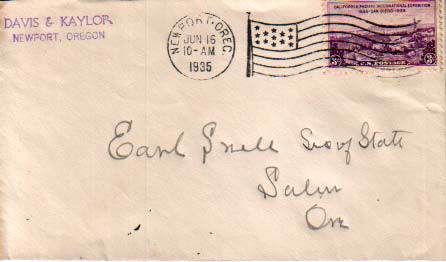 DAVIS & KAYLOR
NEWPORT, OREGON
NEWPORT, OREG.
JUN 16
10-AM
1935
CALIFORNIA PACIFIC INTERNATIONAL EXPOSITION
1935-SAN DIEGO-1935
3¢ U.S. POSTAGE 3¢
Earl Snell Sec of State
Salem
Ore